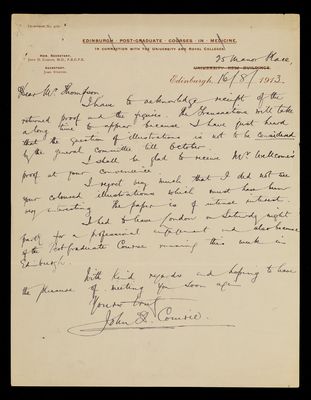 EDINBURGH POST-GRADUATE COURSES IN MEDICINE,
IN CONNECTION WITH THE UNIVERSITY AND ROYAL COLLEGES.
HON. SECRETARY.
JOHN D. COMRIE, M.D., F.R.C.P.E.
SECRETARY.
25 Manor Place,
UNIVERSITY NEW BUILDINGS,
Edinburgh, 16/8/1913.
Dear Mr Thompson,
I have to acknowledge receipt of the
returned proof and the figures. The Transactions will take
a long time to appear because I have just heard
that the question of illustrations is not to be considered
by the general committee till October.
I shall be glad to receive Mr Wellcome's
proof at your convenience.
I regret very much that I did not see
your coloured illustrations which must have been
very interesting. The paper is of intense interest.
I had to leave London on Saturday night
partly for a professional engagement and also because
of the Post-graduate Course running this week in
Edinburgh.
With kind regards and hoping to have
the pleasure of meeting you soon again
Yours truly
John D. Comrie.